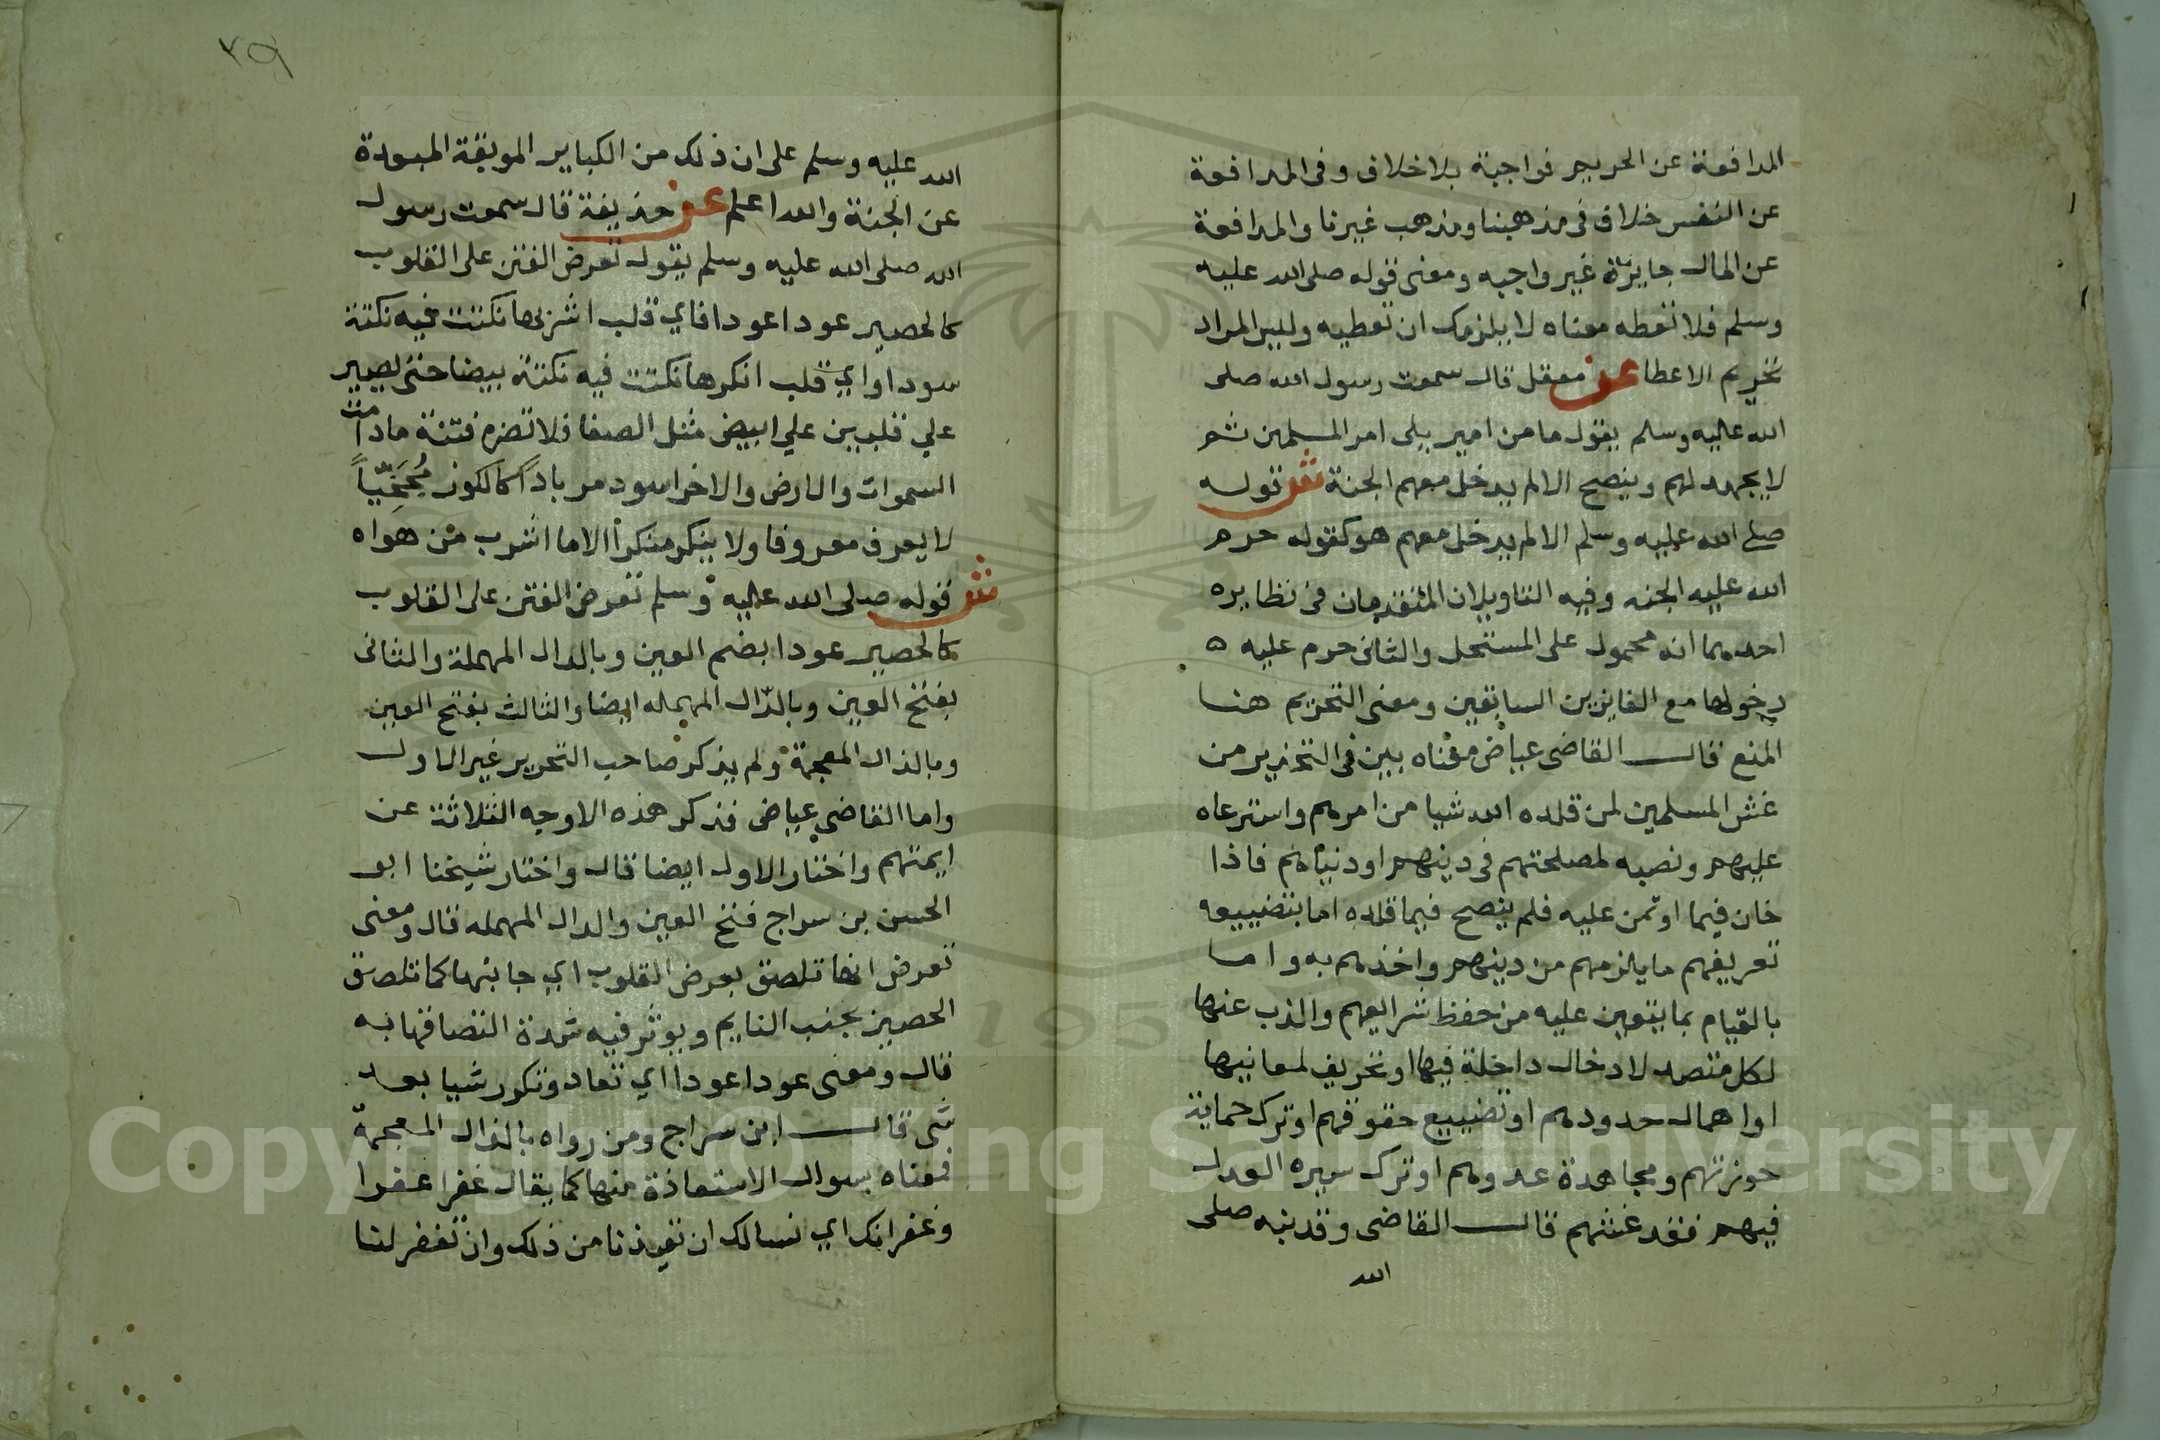 المدافعة عن الحريم فواجبة بلا خلاف وفي المدافعة
عن النفس خلاف في مذهبنا ومذهب غيرنا والمدافعة
عن المال جايزة غير واجبه ومعنى قوله صلى الله عليه
وسلم فلا تعطه معناه لا يلزمك ان تعطيه وليس المراد
تحريم الاعطا عن معقل قال سمعت رسول الله صلى
الله عليه وسلم يقول ما من امير يلى امر المسلمين ثم
لا يجهد لهم وينصح الا لم يدخل معهم الجنة ش قوله
صلى الله عليه وسلم الا لم يدخل معهم هو كقوله حرم
الله عليه الجنه وفيه التاويلان المتقدمان في نظايره
احدهما انه محمول على المستحل والثانى حرم عليه ه
دخولها مع الفايزين السابقين ومعنى التحريم هنا
المنع قال القاضى عياض معناه بين في التحذير من
غش المسلمين لمن قلده الله شيا من امرهم واسترعاه
عليهم ونصبه لمصلحتهم في دينهم او دنياهم فاذا
خان فيما اوتمن عليه فلم ينصح فيما قلده اما بتضييعه
تعريفهم ما يلزمهم من دينهم واخذهم به واما
بالقيام بما يتعين عليه من حفظ شرايعهم والذب عنها
لكل متصد لادخال داخلة فيها او تحريف لمعانيها
او اهمال حدودهم او تضييع حقوقهم او ترك حماية
حوزتهم ومجاهدة عدوهم او ترك سيره العدل
فيهم فقد غشهم قال القاضى وقد نبه صلى
الله
٣٩
الله عليه وسلم على ان ذلك من الكباير الموبقة المبعدة
عن الجنة والله اعلم عن حذيفة قال سمعت رسول
الله صلى الله عليه وسلم يقول تعرض الفتن على القلوب
كالحصير عودا عودا فاي قلب اشربها نكتت فيه نكتة
سودا واي قلب انكرها نكتت فيه نكتة بيضا حتى يصير
علي قلبين علي ابيض مثل الصفا فلا تضره فتنة ما دامت
السموات والارض والاخر اسود مرباداً كالكوز مُجَخِّيّاً
لا يعرف معروفا ولا ينكر منكراً الا ما اشرب من هواه
ش قوله صلى الله عليه وسلم تعرض الفتن على القلوب
كالحصير عودا بضم العين وبالدال المهملة والثانى
بفتح العين وبالدّال المهمله ايضا والثالث بفتح العين
وبالذال المعجمة ولم يذكر صاحب التحرير غير الاول
واما القاضي عياض فذكر هذه الاوجه الثلاثة عن
ايمتهم واختار الاول ايضا قال واختار شيخنا ابو
الحسن بن سراج فتح العين والدال المهمله قال ومعنى
تعرض انها تلصق بعرض القلوب اي جانبها كما تلصق
الحصير بجنب النايم ويوثر فيه شدة التصاقها به
قال ومعنى عودا عودا اي تعاد وتكرر شيا بعد
شى قال ابن سراج ومن رواه بالذال المعجمة
فمعناه سوال الاستعاذة منها كما يقال غفرا غفرا
وغفرانك اي نسالك ان تعيذنا من ذلك وان تغفر لنا
Copyright © King Saud University